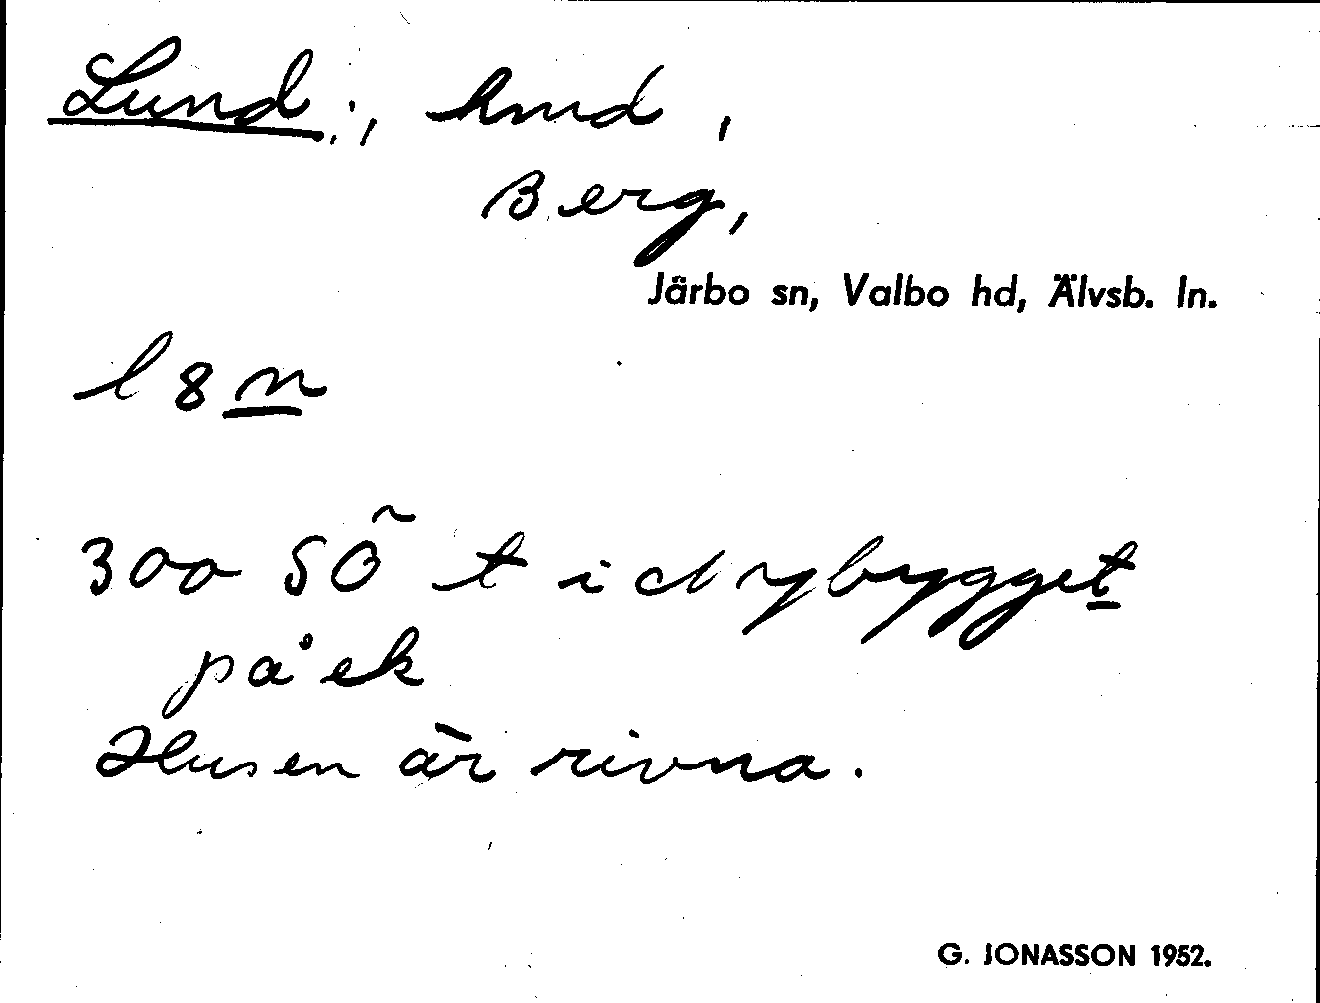 Lund, hmd,
Berg,
Järbo sn, Valbo hd, Älvsb. ln.
l 8 n
300 SÖ t i Nybygget
på ek
Husen är rivna.
G. JONASSON 1952.